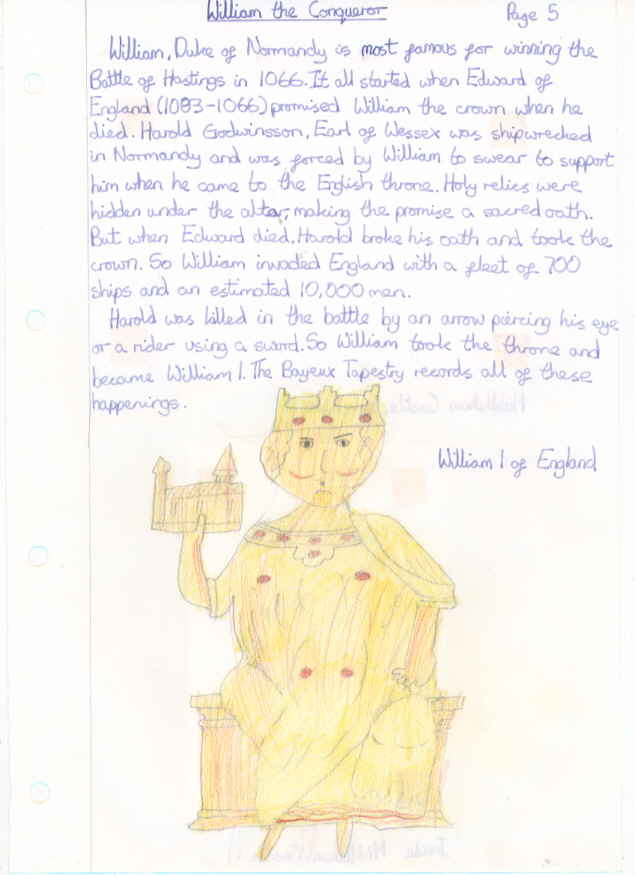 William the Conqueror
Page 5
William, Duke of Normandy is most famous for winning the
Battle of Hastings in 1066. It all started when Edward of
England (1083-1066) promised William the crown when he
died. Harold Godwinsson, Earl of Wessex was shipwrecked
in Normandy and was forced by William to swear to support
him when he came to the English throne. Holy relics were
hidden under the altar, making the promise a sacred oath.
But when Edward died, Harold broke his oath and took the
crown. So William invaded England with a fleet of 700
ships and an estimated 10,000 men.
Harold was killed in the battle by an arrow piercing his eye
or a rider using a sword. So William took the throne and
became William 1. The Bayeux Tapestry records all of these
happenings.
William 1 of England